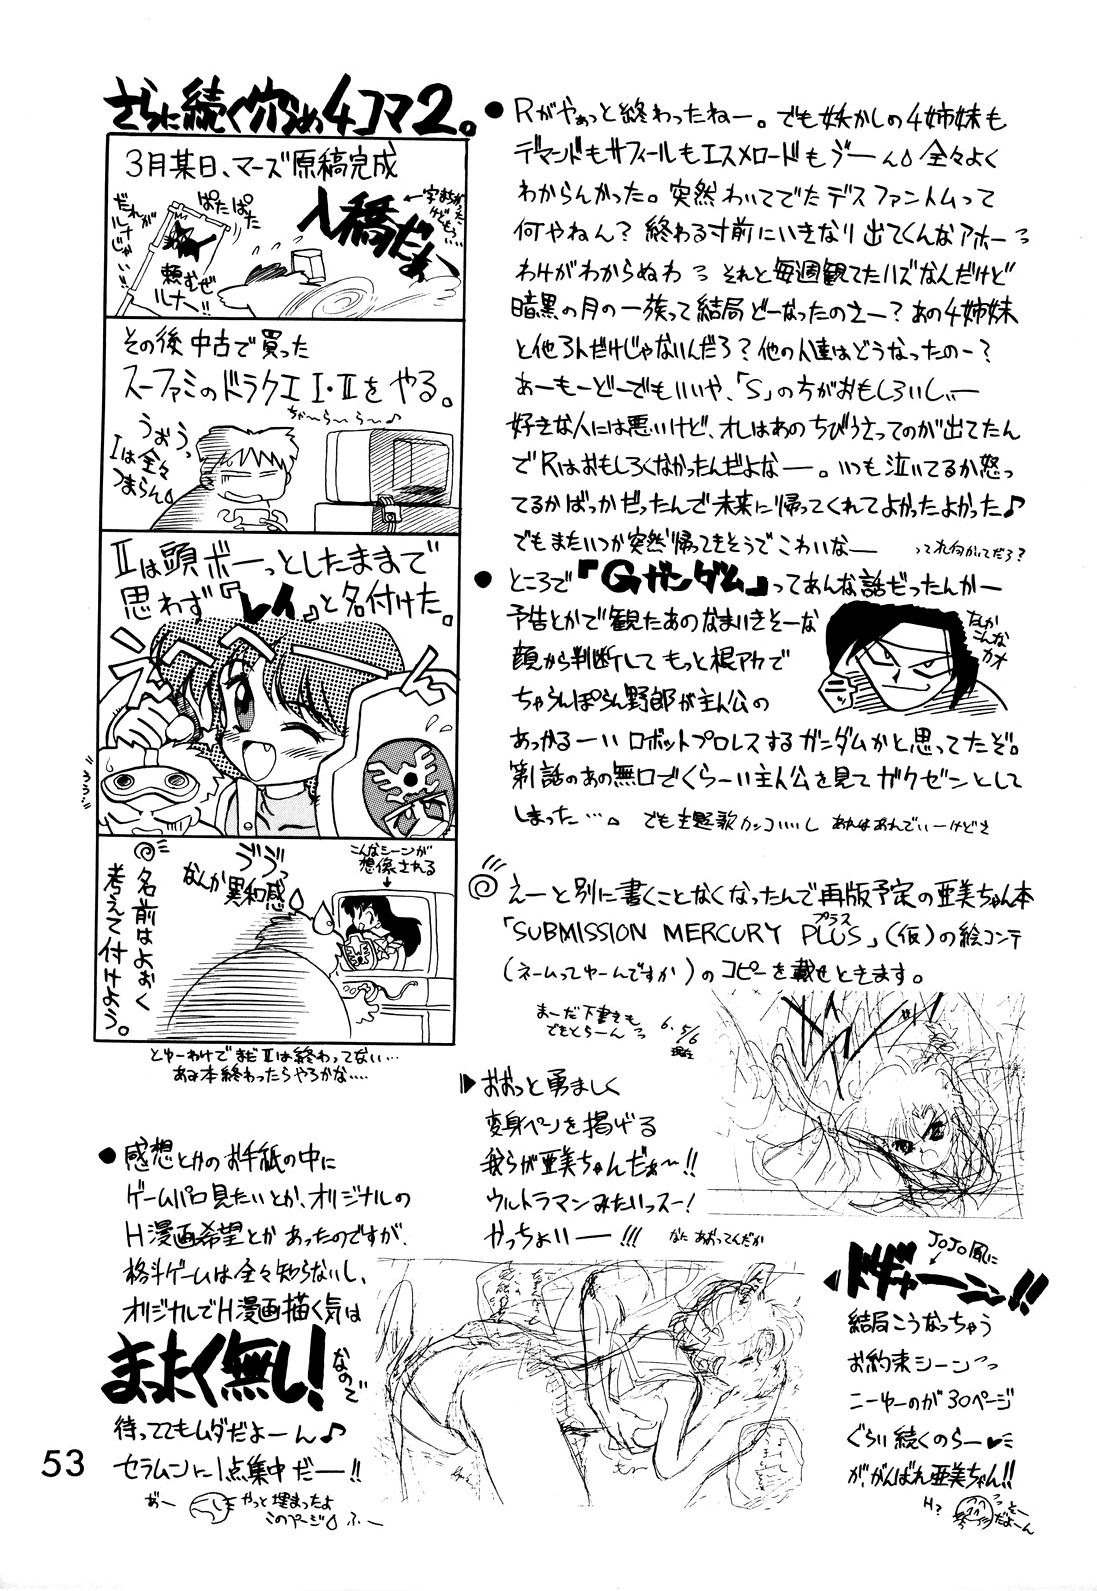 さらに続く穴うめ4コマ2。
3月某日、マーズ原稿完成
入稿だぁ〜
←字まちがったけどもう…
だれがルナじゃい!!
ぱたぱた
頼むぜルナ〜!!
その後中古で買った
スーファミのドラクエⅠ・Ⅱをやる。
ちゃ〜ら〜ら〜♪
うぉぅっ
Ⅰは全々つまらん
Ⅱは頭ボーっとしたままで
思わず『レイ』と名付けた。
ううう
ヴヴっ
なんか異和感
こんなシーンが
想像される
名前はよぉく
考えて付けよう。
とゆーわけでまだⅡは終わってない…
あみ本終わったらやろかな…
●感想とかのお手紙の中に
ゲームパロ見たいとか、オリジナルの
H漫画希望とかあったのですが、
格斗ゲームは全々知らないし、
オリジナルでH漫画描く気は
まったく無し!なので
待っててもムダだよーん♪
セラムンに1点集中だー!!
おー
やっと埋まったよ
このページ ふー
53
●Rがやぁっと終わったねー。でも妖かしの4姉妹も
デマンドもサフィールもエスメロードもゔーん 全々よく
わからんかった。突然わいてでたデスファントムって
何やねん?終わる寸前にいきなり出てくんなアホーっ
わけがわからぬわっ それと毎週観てたハズなんだけど
暗黒の月の一族って結局どーなったのさー?あの4姉妹
と他3人だけじゃないんだろ?他の人達はどうなったのー?
あーもーどーでもいいや、「S」の方がおもしろいしぃー
好きな人には悪いけど、オレはあのちびうさってのが出てたん
でRはおもしろくなかったんだよなー。いつも泣いてるか怒っ
てるかばっかだったんで未来に帰ってくれてよかったよかった♪
でもまたいつか突然帰ってきそうでこわいなー ってれ何がってだろ?
●ところで『Gガンダム』ってあんな話だったんかー
予告とかで観たあのなまいきそーな
顔から判断してもっと根アカで
ちゃらんぽらん野郎が主人公の
あっかるーいロボットプロレスするガンダムかと思ってたぞ。
第1話のあの無口でくらーい主人公を見てガクゼンとして
しまった…。でも主題歌カッコいいし あれはあれでいーけどさ
なんか
こんな
カオ
えーと別に書くことなくなったんで再版予定の亜美ちゃん本
「SUBMISSION MERCURY PLUS」(仮)の絵コンテ
プラス
(ネームってゆーんですか)のコピーを載せときます。
まーだ下書きも
できとらーんっ
6.5/6
現在
▶おおっと勇ましく
変身ペンを掲げる
我らが亜美ちゃんだぁ〜!!
ウルトラマンみたいっスー!
かっちょいー!!! なにあおってんだか
JoJo風に
ドギャーーン!!
結局こうなっちゃう
お約束シーンっ
こーゆーのが30ページ
ぐらい続くのらー♥
が、がんばれ亜美ちゃん!!
H?
そーだよーん